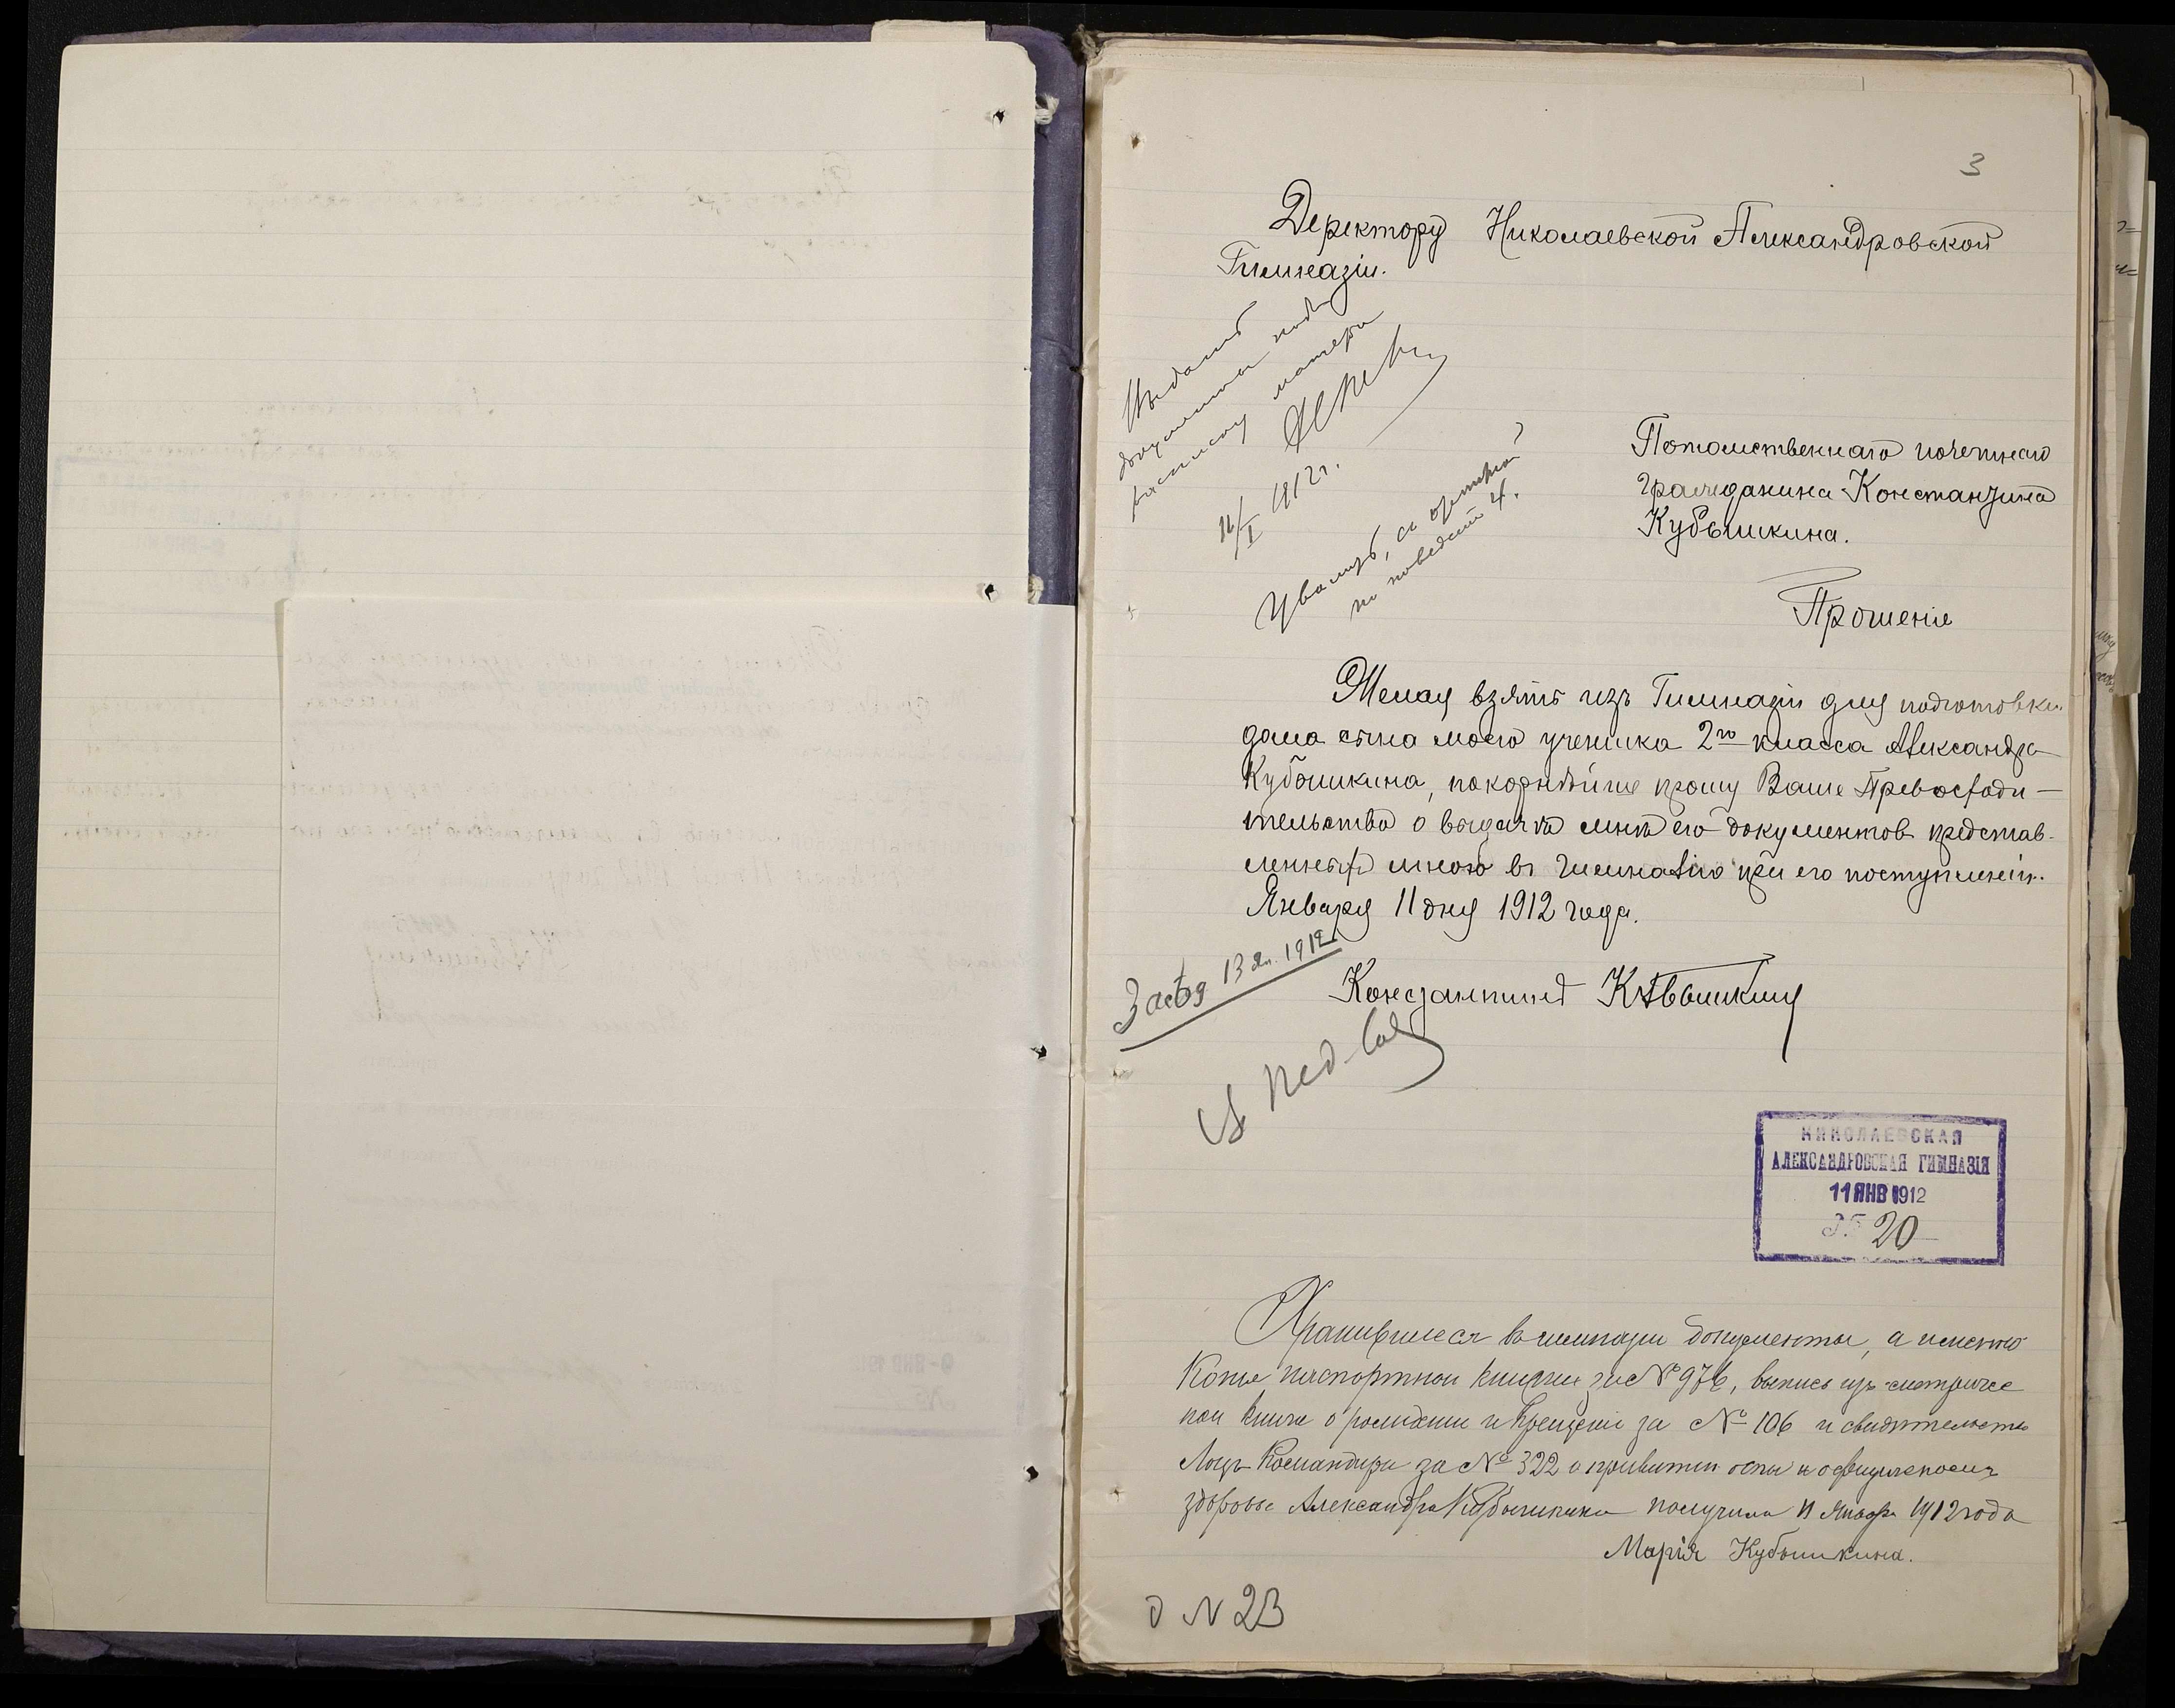 3
Деректору Николаевской Александровской
Гимназіи.
Выдать
документы подъ
росписку матери
11/I 1912 г.
Уволить, съ отметкой
по поведен 4.
Потомственнаго почетнаго
гражданина Константина
Кубышкина.
Прошеніе
Желая взять изъ Гимназіи для подготовки
дома сына моего ученика 2го класса Александра
Кубышкина, покорнѣйше прошу Ваше Превосходи-
тельство о выдачѣ мнѣ его документов представ-
ленныхъ мною въ гимназію при его поступленіи.
Января 11 дня 1912 года.
Засѣд 13 Ян. 1912
Константинъ Кубышкинъ
Въ Пед. Сов
НИКОЛАЕВСКАЯ
АЛЕКСАНДРОВСКАЯ ГИМНАЗІЯ
11 ЯНВ 1912
№ 20
Хранившіеся въ гимназіи документы, а именно
Копіе паспортной книжки за № 976, выпись изъ метричес
кой книги о рожденіи и крещеніи за № 106 и свидѣтельство
Лоцъ Командира за № 322 о привитіи оспы и
здоровье Александра Кубышкина получила 11 Января 1912 года
Марія Кубышкина.
д N 23